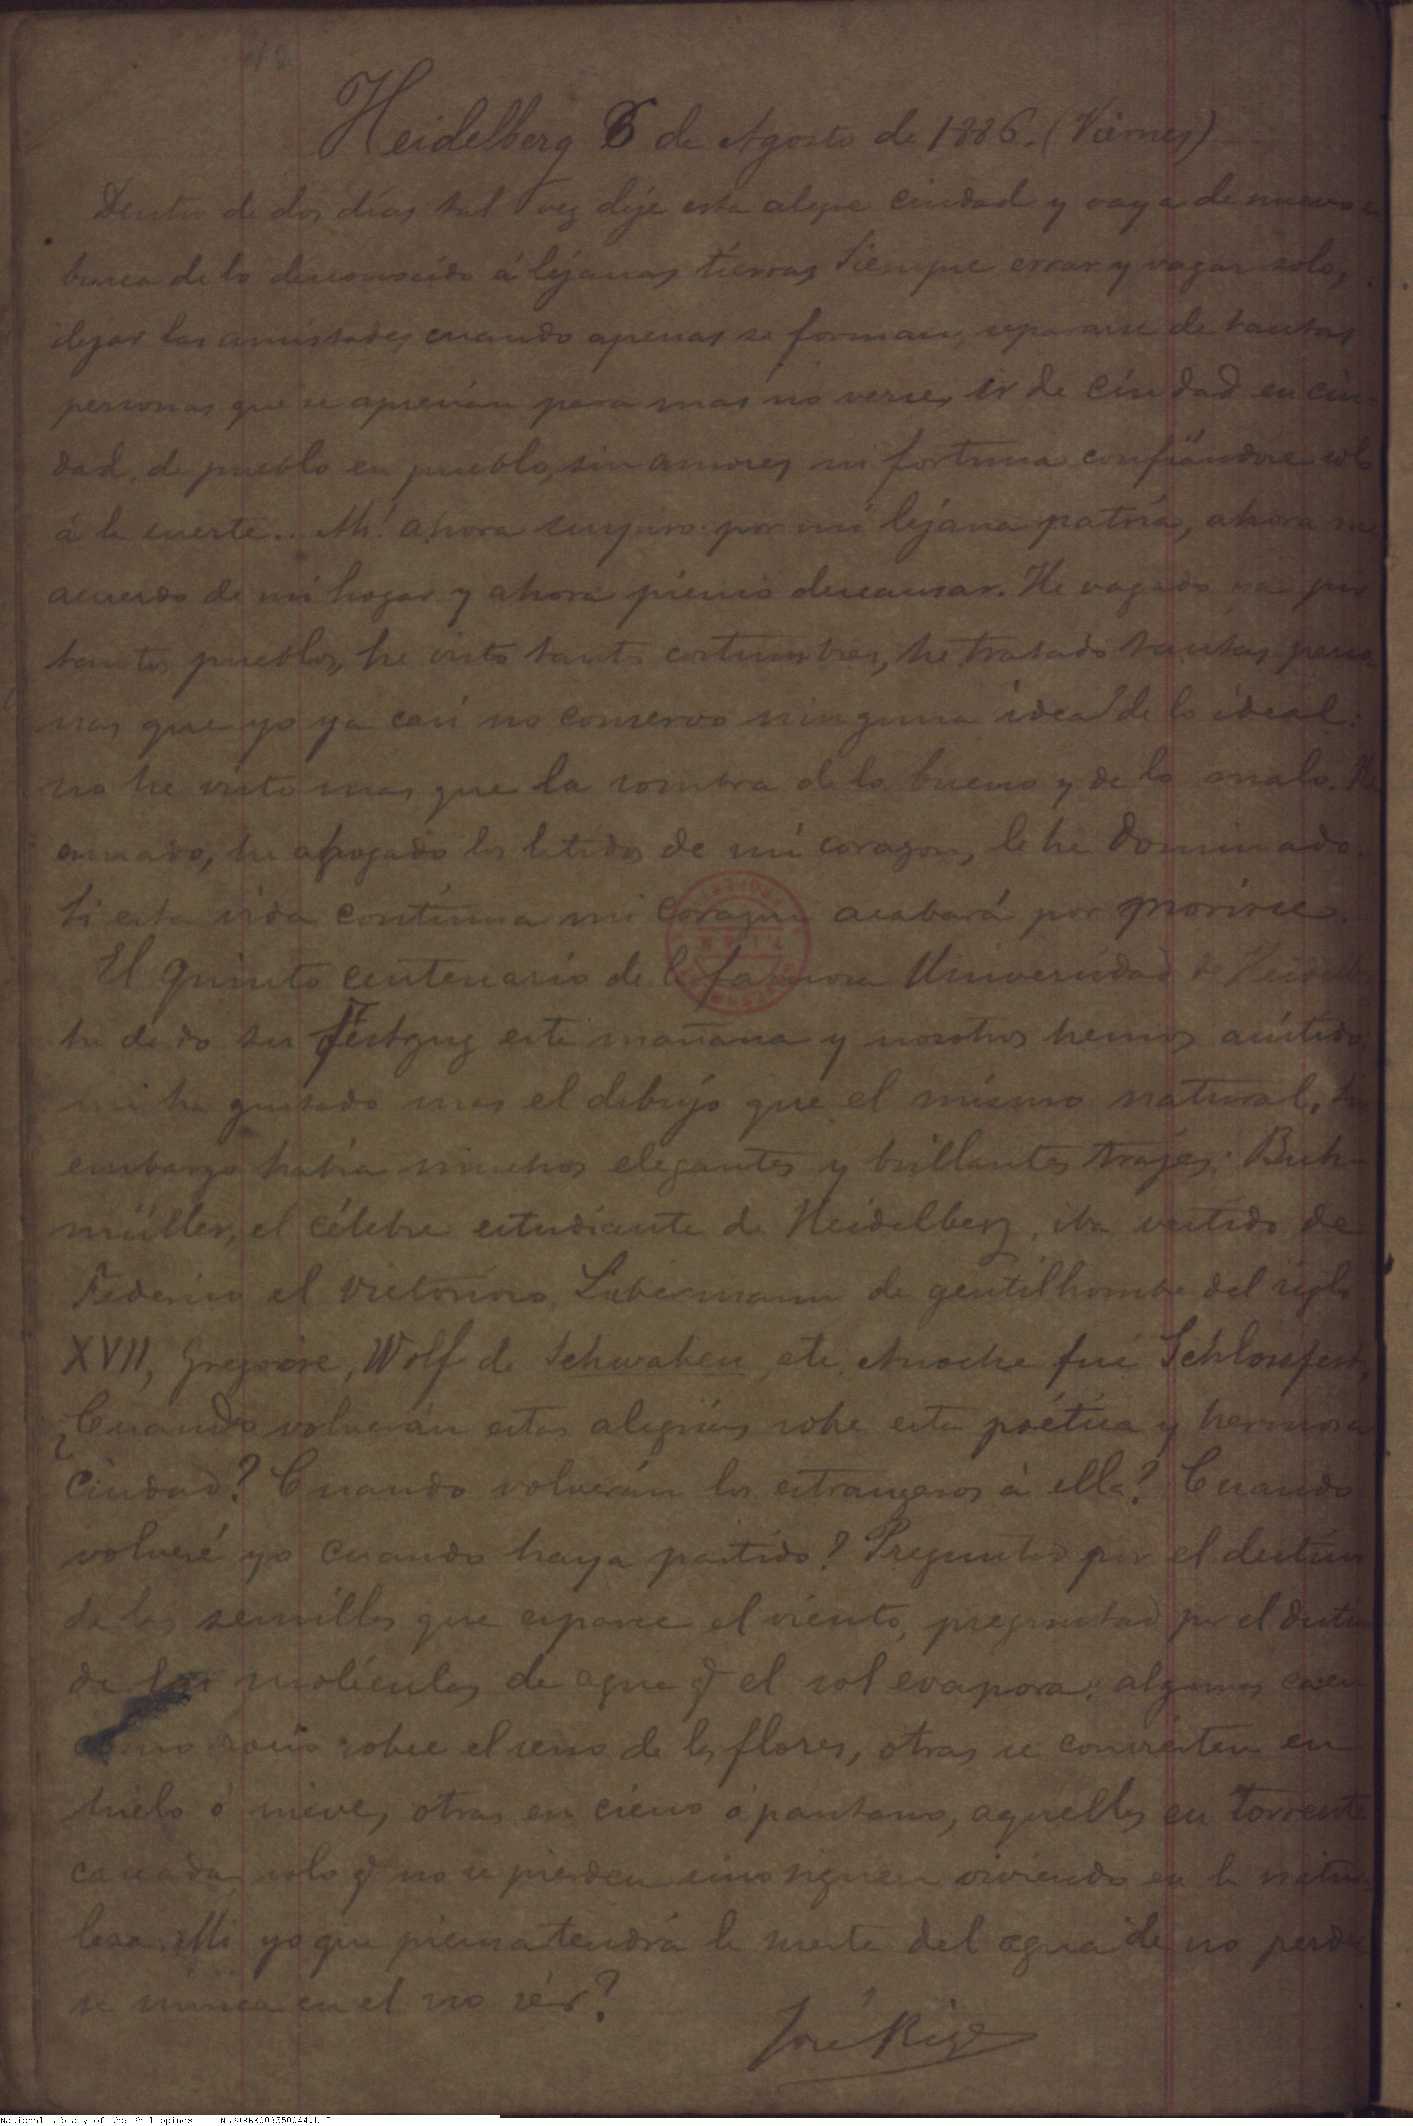 Heidelberg 6 de Agosto de 1886. (Viernes)
Dentro de dos días tal vez deje esta alegre ciudad y vaya de nuevo
busca de lo desconocido á lejanas tierras. Siempre errar y vagar solo,
dejar las amistades cuando apenas se forman, separarse de tantas
personas que se aprecian para mas no verse, ir de ciudad en ciu-
dad, de pueblo en pueblo, sin amores ni fortuna confiándose solo
á la suerte... Ah! ahora suspiro por mi lejana patria, ahora me
acuerdo de mi hogar y ahora pienso descansar. He vagado ya por
tantos pueblos, he visto tantas costumbres, he tratado tantas perso-
nas que yo ya casi no conservo ninguna idea de lo ideal:
no he visto mas que la sombra de lo bueno y de lo malo. He
amado, he apagado los latidos de mi corazon, le he dominado.
Si esta vida continua mi corazon acabará por morirse.
El quinto centenario de la famosa Universidad de Heidelberg
ha dado su Festzug esta mañana y nosotros hemos asistido
mi ha gustado mas el dibujo que el mismo natural, Sin
embargo habia muchos elegantes y brillantes trajes: Buh-
müller, el célebre estudiante de Heidelberg, iba vestido de
Federico el Victorioso, Libermann de gentilhombre del siglo
XVII, Gregoire, Wolf de Schwaben, etc. Anoche fué Schlossfest,
¿Cuando volverán estas alegrías sobre esta poética y hermosa
ciudad? Cuando volverán los estrangeros á ella? Cuando
volveré yo cuando haya partido? Preguntad por el destino
de las semillas que esparce el viento, preguntad por el destino
de las moléculas de agua q̃ el sol evapora: algunas caen
como rocío sobre el seno de las flores, otras se convierten en
hielo ó nieve, otras en cieno ó pantano, aquellas en torrente
cascada, solo q̃ no se pierden sino siguen viviendo en la natura-
leza. Mi yo que piensa tendrá la suerte del agua de no perder-
se nunca en el no sér?
José Rizal